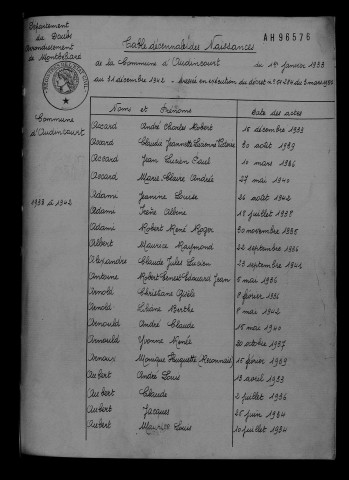 Département
du Doubs
Arrondissement
de Montbéliard
Table décennale des Naissances
AH 96576
de la Commune d'Audincourt du 1er janvier 1933
au 31 décembre 1942 - dressé en exécution du décret n° 51284 du 3 mars 1951
Commune
d'Audincourt
1933 à 1942
Noms et Prénoms Date des actes
Accard André Charles Robert 16 décembre 1933
Accard Claude Jeannette 30 août 1939
Accard Jean Lucien Paul 10 mars 1936
Accard Marie Claire Andrée 27 mai 1940
Adami Jeanne Louise 26 août 1942
Adami Irène Albine 1er juillet 1938
Adami Robert René Roger 30 novembre 1935
Albert Maurice Raymond 22 septembre 1936
Alexandre Claude Jules Lucien 23 septembre 1942
Antoine Robert Ernest Edouard Jean 6 mai 1936
Arnold Christiane Gisèle 8 février 1936
Arnold Liliane Berthe 8 mai 1942
Arnould André Claude 18 mai 1940
Arnould Yvonne Renée 20 octobre 1937
Arnoux Monique Huguette 15 février 1939
Aubert André Louis 13 avril 1933
Aubert Claude 2 juillet 1936
Aubert Jacques 26 juin 1934
Aubert Maurice Louis 10 juillet 1934